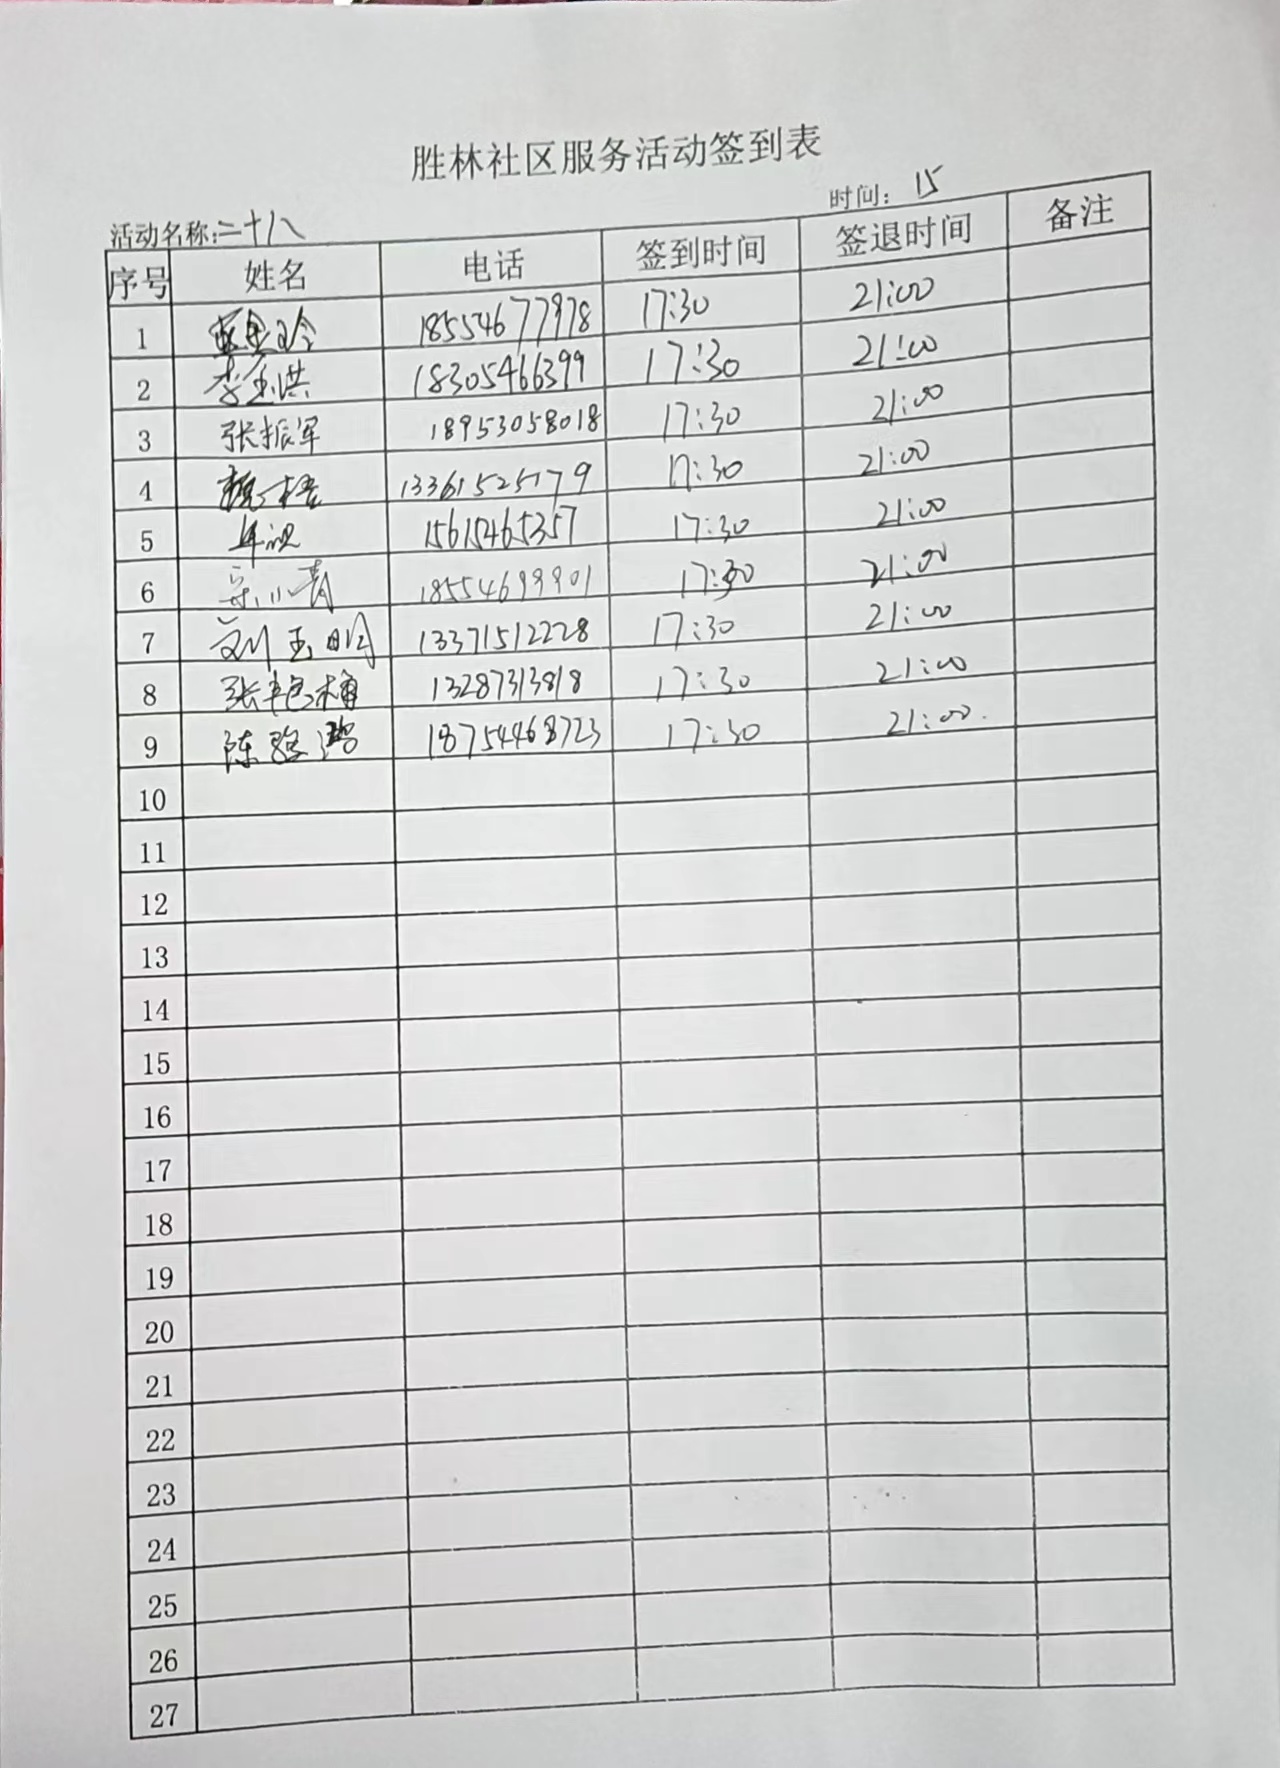 胜林社区服务活动签到表
活动名称:二十八 时间: 15
序号 姓名 电话 签到时间 签退时间 备注
1 18554677978 17:30 21:00
2 李玉洪 18305466399 17:30 21:00
3 张振军 18953058018 17:30 21:00
4 13361525179 17:30 21:00
5 15615465357 17:30 21:00
6 宋小青 18554699901 17:30 21:00
7 刘玉明 13371512228 17:30 21:00
8 张艳梅 13287313818 17:30 21:00
9 陈 18754468723 17:30 21:00
10
11
12
13
14
15
16
17
18
19
20
21
22
23
24
25
26
27